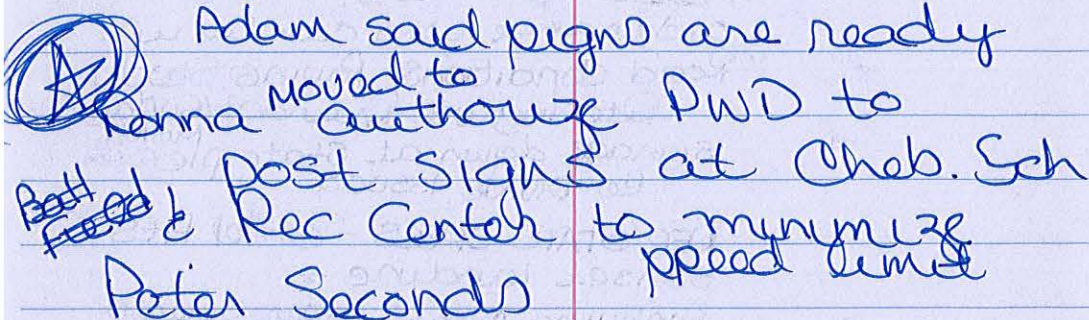 Adam said signs are ready
moved to
Donna authorize PWD to
post signs at Cheb. Sch
& Rec Center to minymize
speed limit
Peter Seconds